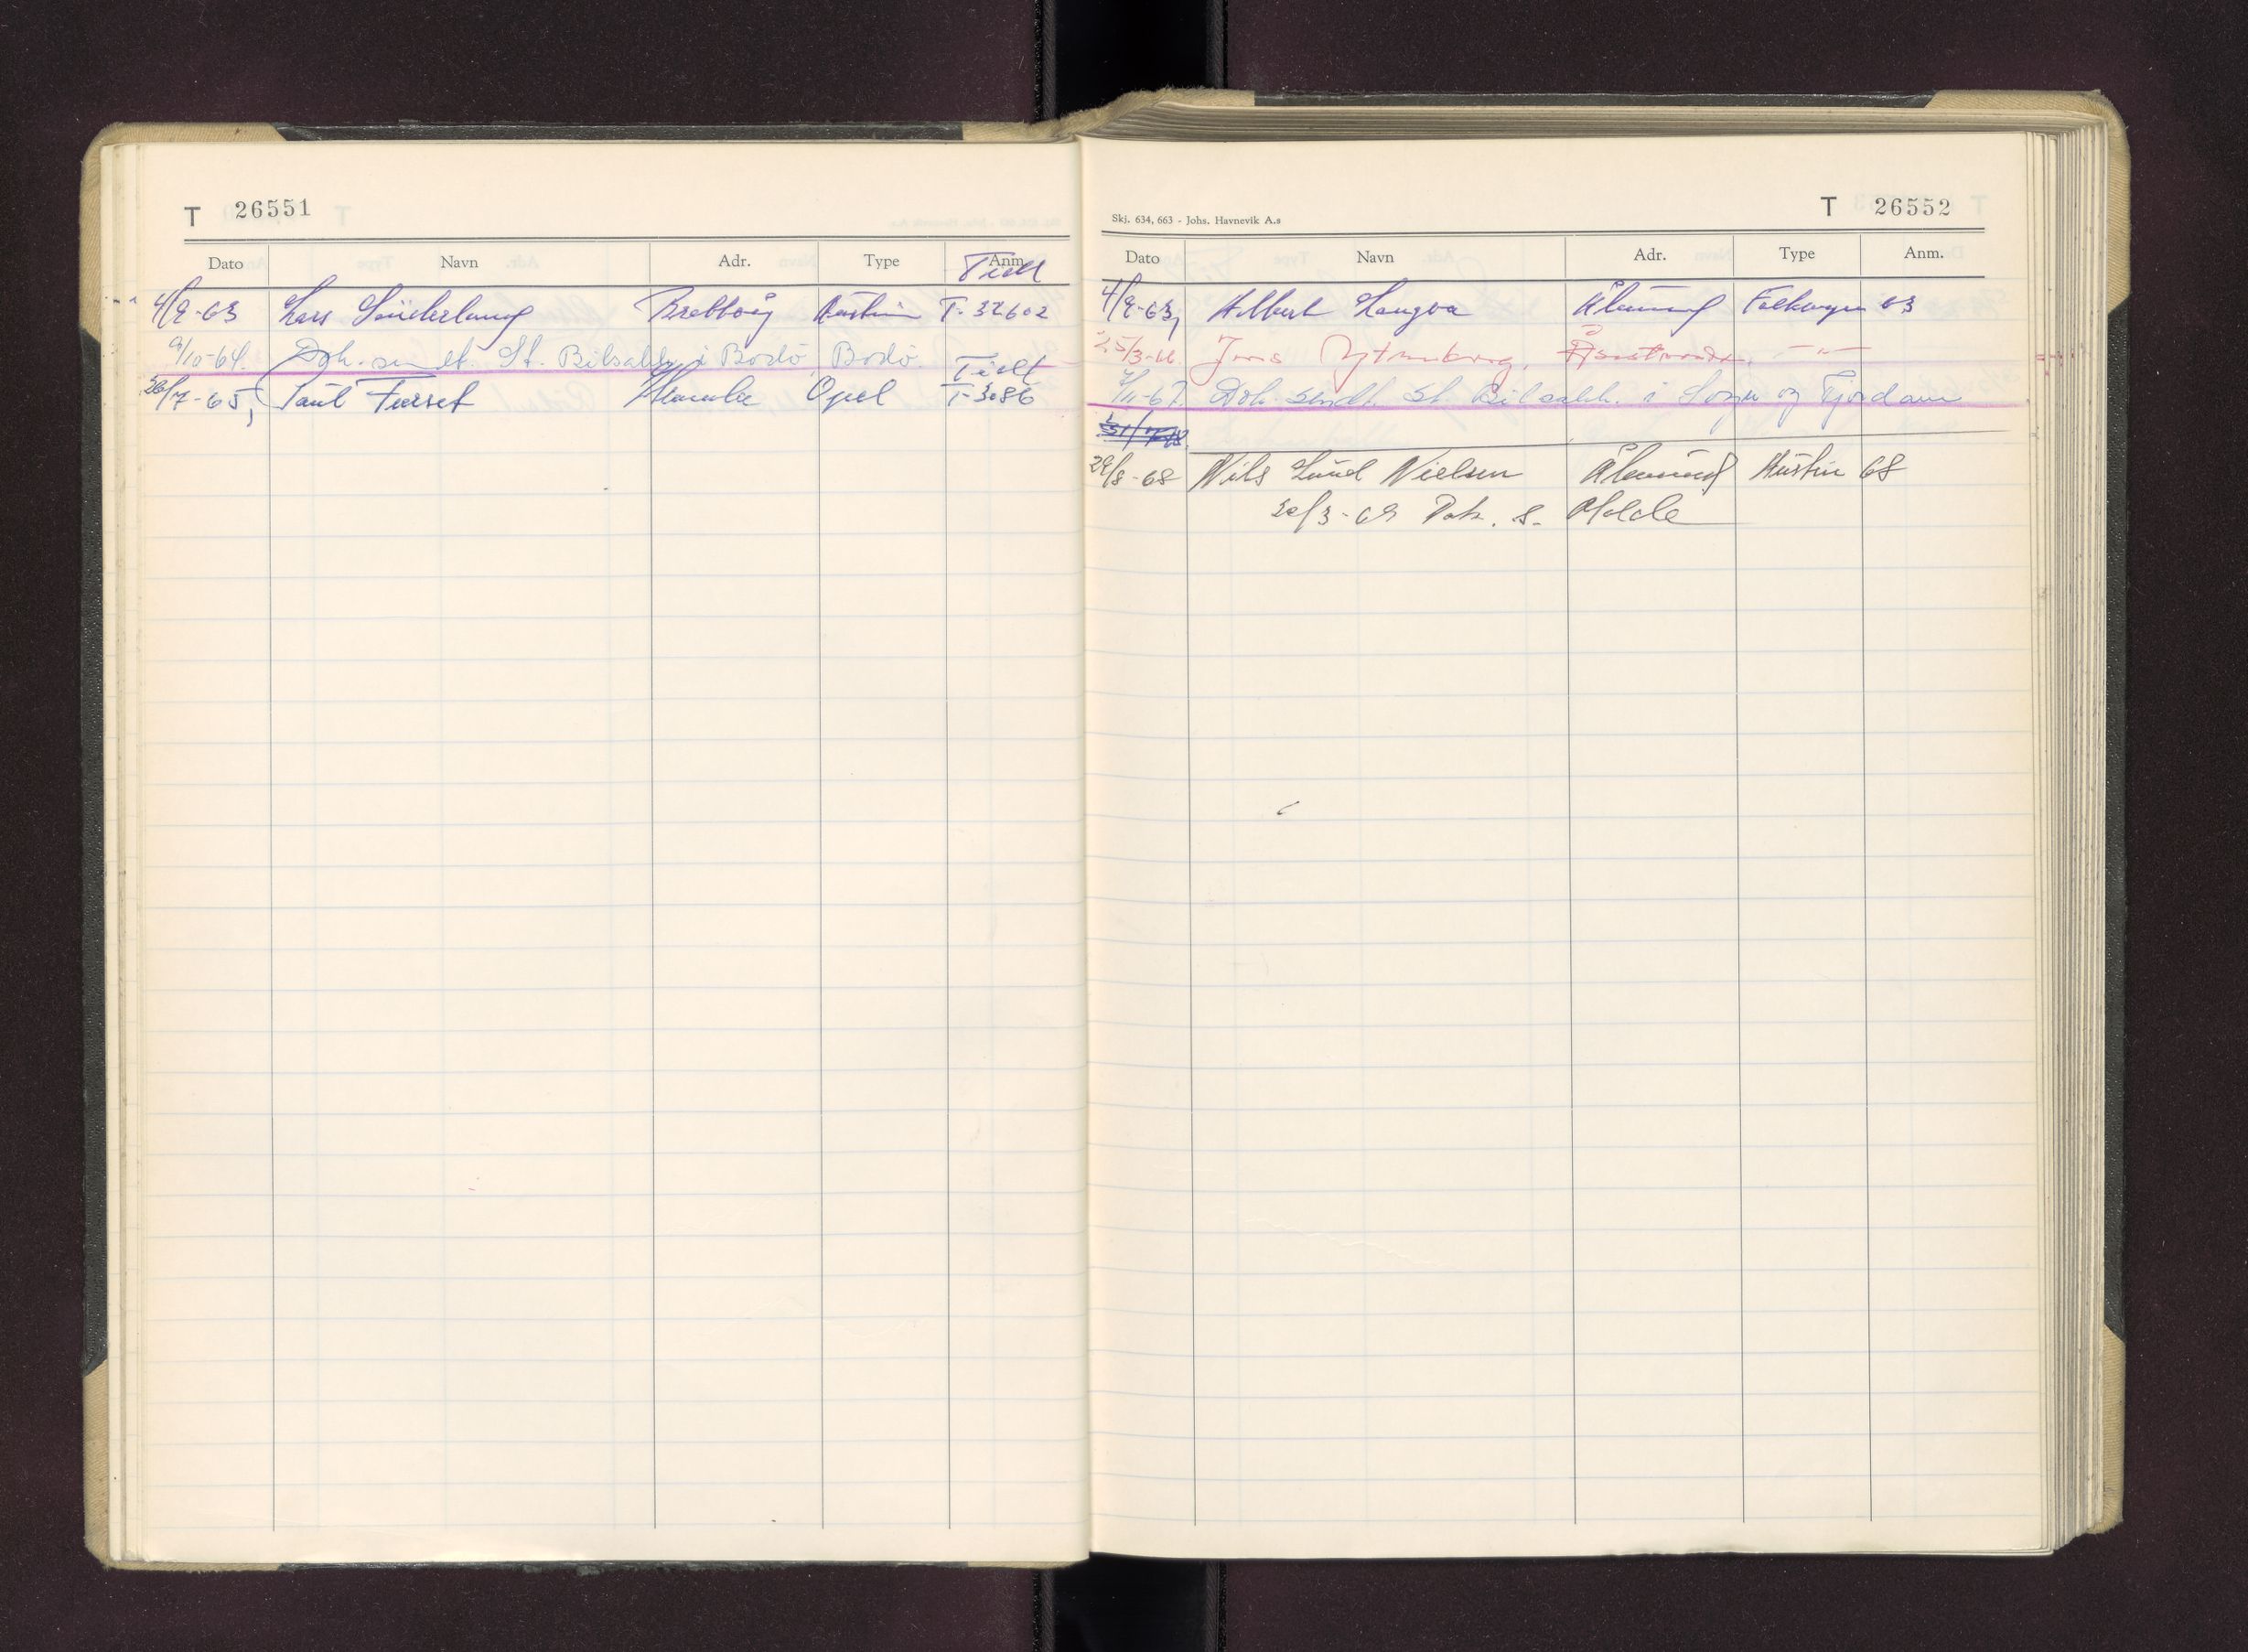 T 26551
Dato Navn Adr. Type Anm.
Tidl
4/9-63 Lars Sünderland Brattvåg Austin T-32602
9/10-64. Dok. sendt. St. Bilsakk. i Bodö, Bodö.
Tidl
26/7-65, Paul Furset Hamla Opel T-3086
Skj. 634, 663 - Johs. Havnevik A.s
T 26552
Dato Navn Adr. Type Anm.
4/9-63, Albert Langva Ålesund Folkvogn 63
25/3-66 Jens Åsestranda. -"-
4/11-67. Dok. sendt. St. Bilsakk. i Sogn og Fjordane
29/8-68 Nils Lund Nielsen Ålesund Austin 68
20/3-69 Dok. s. Molde